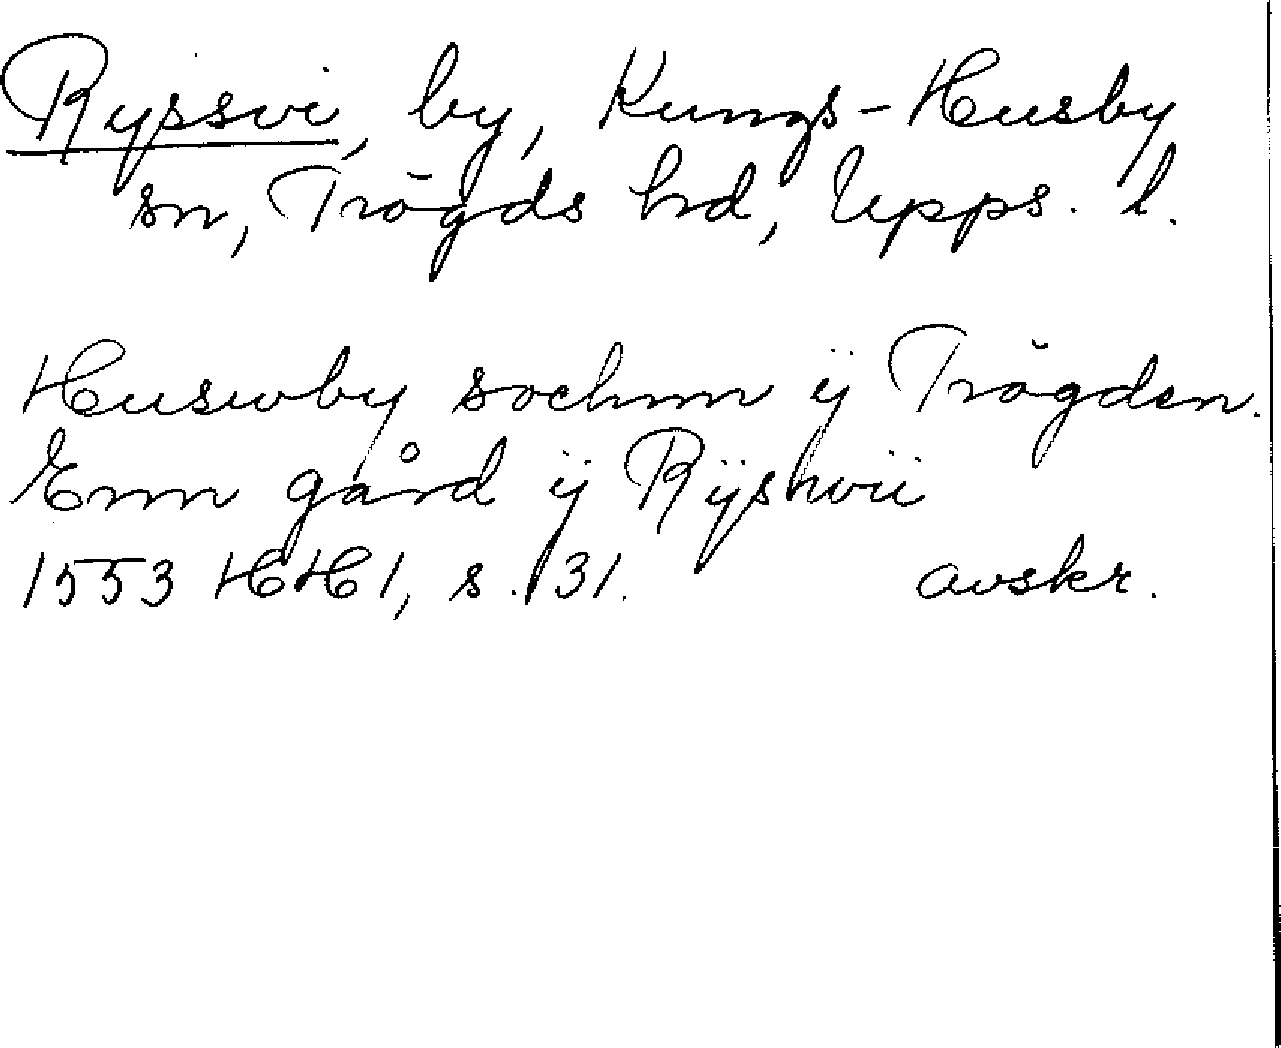 Ryssvi, by, Kungs-Husby
sn, Trögds hd, Upps. l.
Huswby sochnn ÿ Trögden.
Enn gård ÿ Rÿshvii
1553 HH 1, s. 31. avskr.